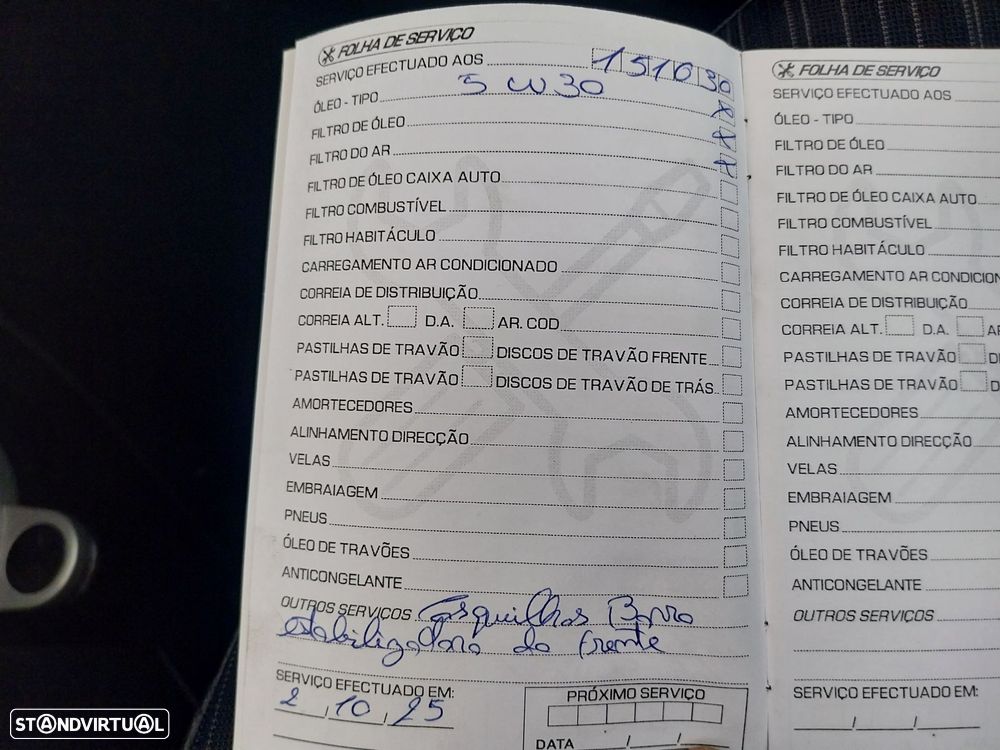 FOLHA DE SERVIÇO
SERVIÇO EFECTUADO AOS 151030
ÓLEO - TIPO 5 W 30 X
FILTRO DE ÓLEO X
FILTRO DO AR X
FILTRO DE ÓLEO CAIXA AUTO
FILTRO COMBUSTÍVEL
FILTRO HABITÁCULO
CARREGAMENTO AR CONDICIONADO
CORREIA DE DISTRIBUIÇÃO
CORREIA ALT. D.A. AR. COD
PASTILHAS DE TRAVÃO DISCOS DE TRAVÃO FRENTE
PASTILHAS DE TRAVÃO DISCOS DE TRAVÃO DE TRÁS
AMORTECEDORES
ALINHAMENTO DIRECÇÃO
VELAS
EMBRAIAGEM
PNEUS
ÓLEO DE TRAVÕES
ANTICONGELANTE
OUTROS SERVIÇOS Casquilhos Barra
estabilizadora da frente
SERVIÇO EFECTUADO EM:
2 / 10 / 25
PRÓXIMO SERVIÇO
DATA / /
FOLHA DE SERVIÇO
SERVIÇO EFECTUADO AOS
ÓLEO - TIPO
FILTRO DE ÓLEO
FILTRO DO AR
FILTRO DE ÓLEO CAIXA AUTO
FILTRO COMBUSTÍVEL
FILTRO HABITÁCULO
CARREGAMENTO AR CONDICION
CORREIA DE DISTRIBUIÇÃO
CORREIA ALT. D.A. AR
PASTILHAS DE TRAVÃO D
PASTILHAS DE TRAVÃO D
AMORTECEDORES
ALINHAMENTO DIRECÇÃO
VELAS
EMBRAIAGEM
PNEUS
ÓLEO DE TRAVÕES
ANTICONGELANTE
OUTROS SERVIÇOS
SERVIÇO EFECTUADO EM:
/ /
STANDVIRTUAL